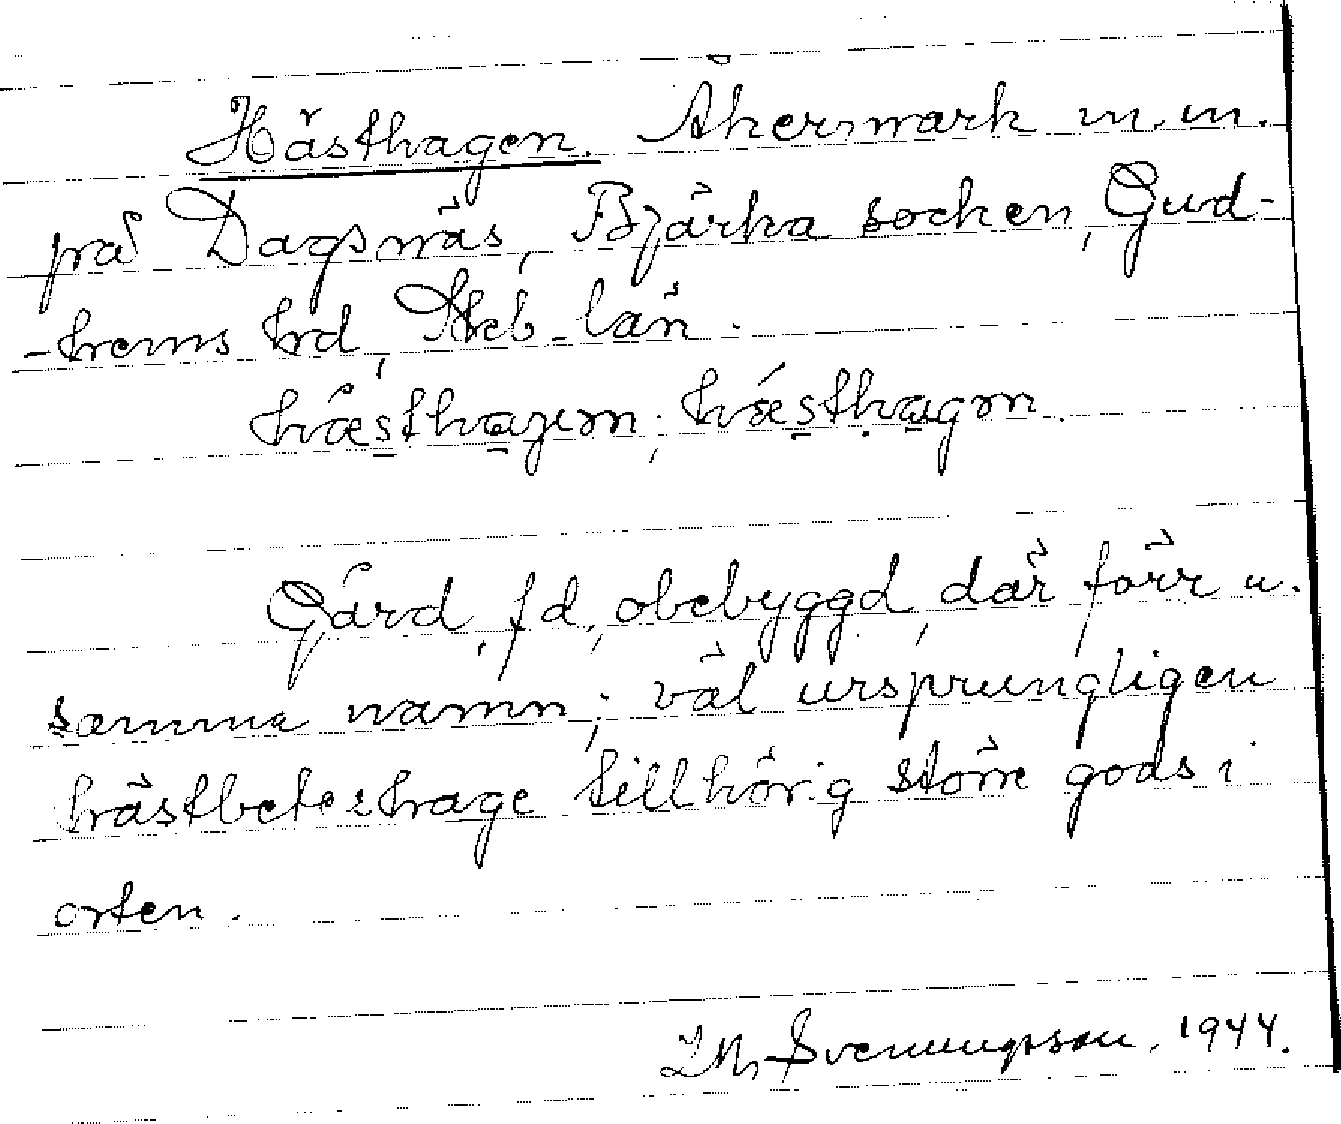 Hästhagen. Åkermark m.m.
på Dagsnäs, Bjärka socken, Gud-
-hems hd, Skb. län.
hæsthagen; hæsthagɷn.
Gård, fd, obebyggd, där förr u.
samma namn; väl ursprungligen
hästbeteshage tillhörig större gods i
orten.
Svenungsson, 1944.